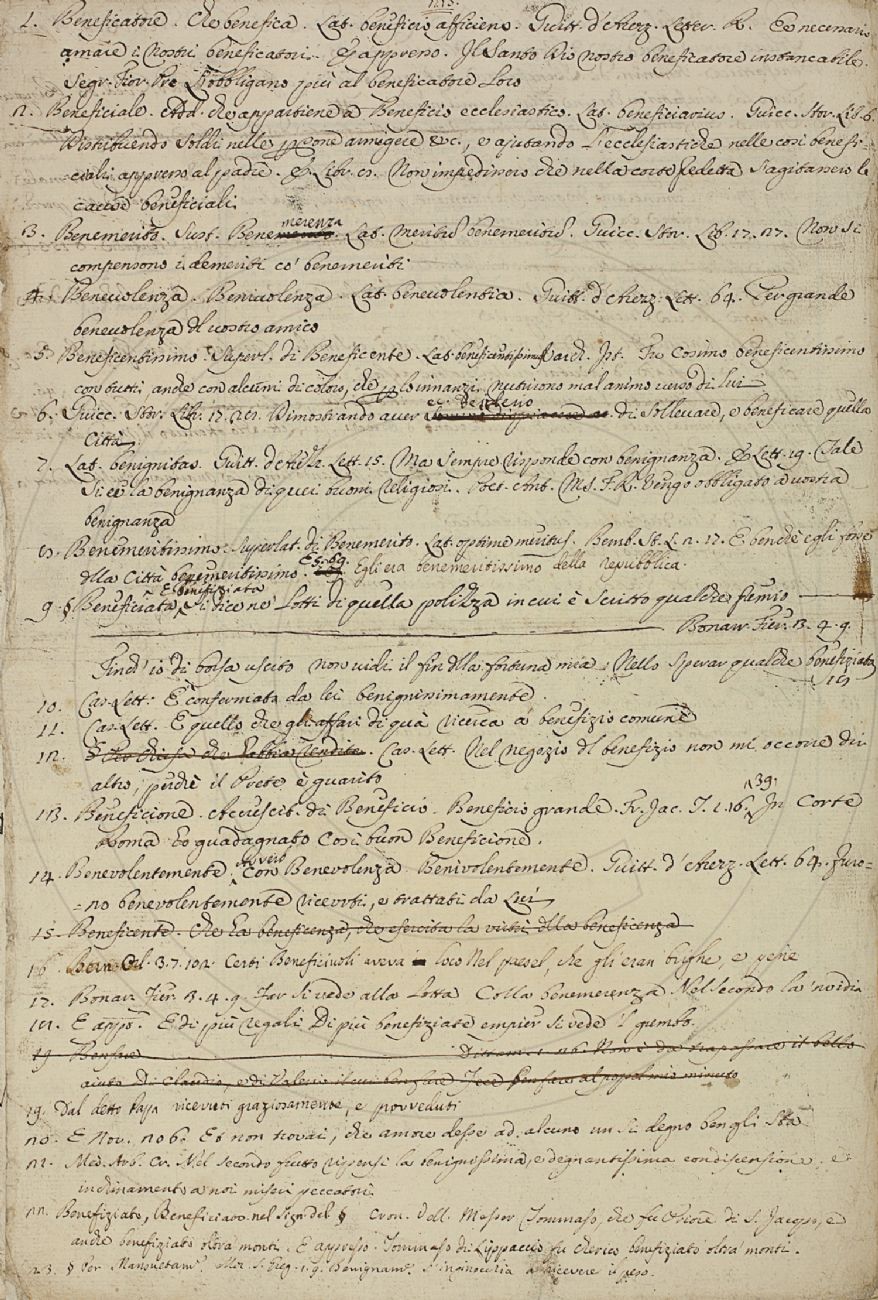 1. Beneficatore. Che benefica. Lat. beneficio afficiens. Guitt. d'Arezz. Letter. R. Es necenario
amare i Nostri beneficatori. & appreno. Il Santo Dio nostro beneficatore instancabile.
Segr. Fior. Pre obbligano più al beneficatore Loro
2. Beneficiale. Add. che appartiene a Beneficio ecclesiastico. Lat. beneficiarius. Guicc. Stor. Lib. 6.
Distribuendo soldi nelle armigere &c., e ajutando L'ecclesiastiche nelle cosi benefi-
ciali appreno al padre. & Libr. Non impedirono che nella corte sedetta s'agitassero le
cause beneficiali
3. Benemerito. Sust. Benemerenza Lat. meritus benemeritus. Guicc. Stor. Lib. 17. 27. Non si
compensono i demeriti co' benemeriti
4. Benevolenza. Benivolenza. Lat. benevolentia. Guitt. d'Arezz. Lett. 64. Per grande
benevolenza di vostro amico
5. Beneficentissimo. Superl. di Beneficente. Lat. beneficentissimus Ist. Fu Cosimo beneficentissimo
con tutti, anche con alcuni di coloro, che p lo innanzi nutrirono mal animo verso di lui
6. Guicc. Stor. Lib. 17. Dimostrando aver desiderio di sollevare, e beneficare quella
Città
7. Lat. benignitas. Guitt. d'Arezz. Lett. 15. Ma sempre risponde con benignanza. & Lett. 19. Tale
si è la benignanza di quei buoni Religiosi. Poet. Ant. Ms. F. R. Vengo obbligato a vostra
benignanza
8. Benemeritissimo. Superlat. di Benemerito. Lat. optime meritus. Bemb. St. L. 2. 17. E benchè egli fosse
della Città benemeritissimo. E 5. 69. Egli era benemeritissimo della repubblica.
9. § Beneficiata, E Benefiziata si dice ne' Lotti di quella polizza in cui è scritto qualche premio
Bonar. Fier. 3. 4. 9.
Finch' io di borsa uscito non vidi il fin della fortuna mia. Nello sperar qualche benefiziata
10. Car. Lett. È confermata da lei benignissimamente.
11. Car. Lett. E quello che gli affari di quà ricerca a benefizio comune
12. Car. Lett. Nel negozio del benefizio non mi occorre dir
altro, perchè il Prete è guarito
13. Beneficione. Accrescit. di Beneficio. Beneficio grande. Fr. Jac. T. 1. 16. 39. In Corte
Roma ho guadagnato Così buon Beneficione.
14. Benevolentemente. ovvero Con Benevolenza. Benivolentemente. Guitt. d'Arezz. Lett. 64. Furo=
=no benevolentemente ricevuti, e trattati da Lui
15. Beneficente. Che ha beneficenza, che esercita la virtù della beneficenza
16. Bern. Orl. 3. 7. Certi Beneficiuoli aveva loco Nel paesel, che gli eran brighe, e pene
17. Bonar. Fier. 3. 4. 9. Far si vede alla Lotta Colla benemerenza. Nel secondo la 'nvidia
18. E appo. E di più regali Di più benefiziate empier si vede 'l grembo.
19 Bensare Dittam. 1. 26. Non è da trapassare il bello
aiuto Di Claudio, e di Valerio
19. Dal detto Papa ricevuti graziosamente, e provveduti
20. E Nov. 206. Et non trovai, che amore desse ad alcuno un sì degno ben gli sta
21. Med. Arb. Cr. Nel secondo frutto ripensi la benignissima, e degnantissima condiscensione, e
inclinamento a noi miseri peccatori
22. Benefiziato, Beneficiato nel Sign. del § Cron. Vell. Messer Tommaso, che fu Priore di S. Jacopo, e
anche benefiziato oltra monti. E appresso. Tommaso di Lippaccio fu Cherico benefiziato oltra monti.
23. § Per Mansuetam. Mor. S. Greg. 1. 9. Benignam. s'inginocchia a ricevere il peso.